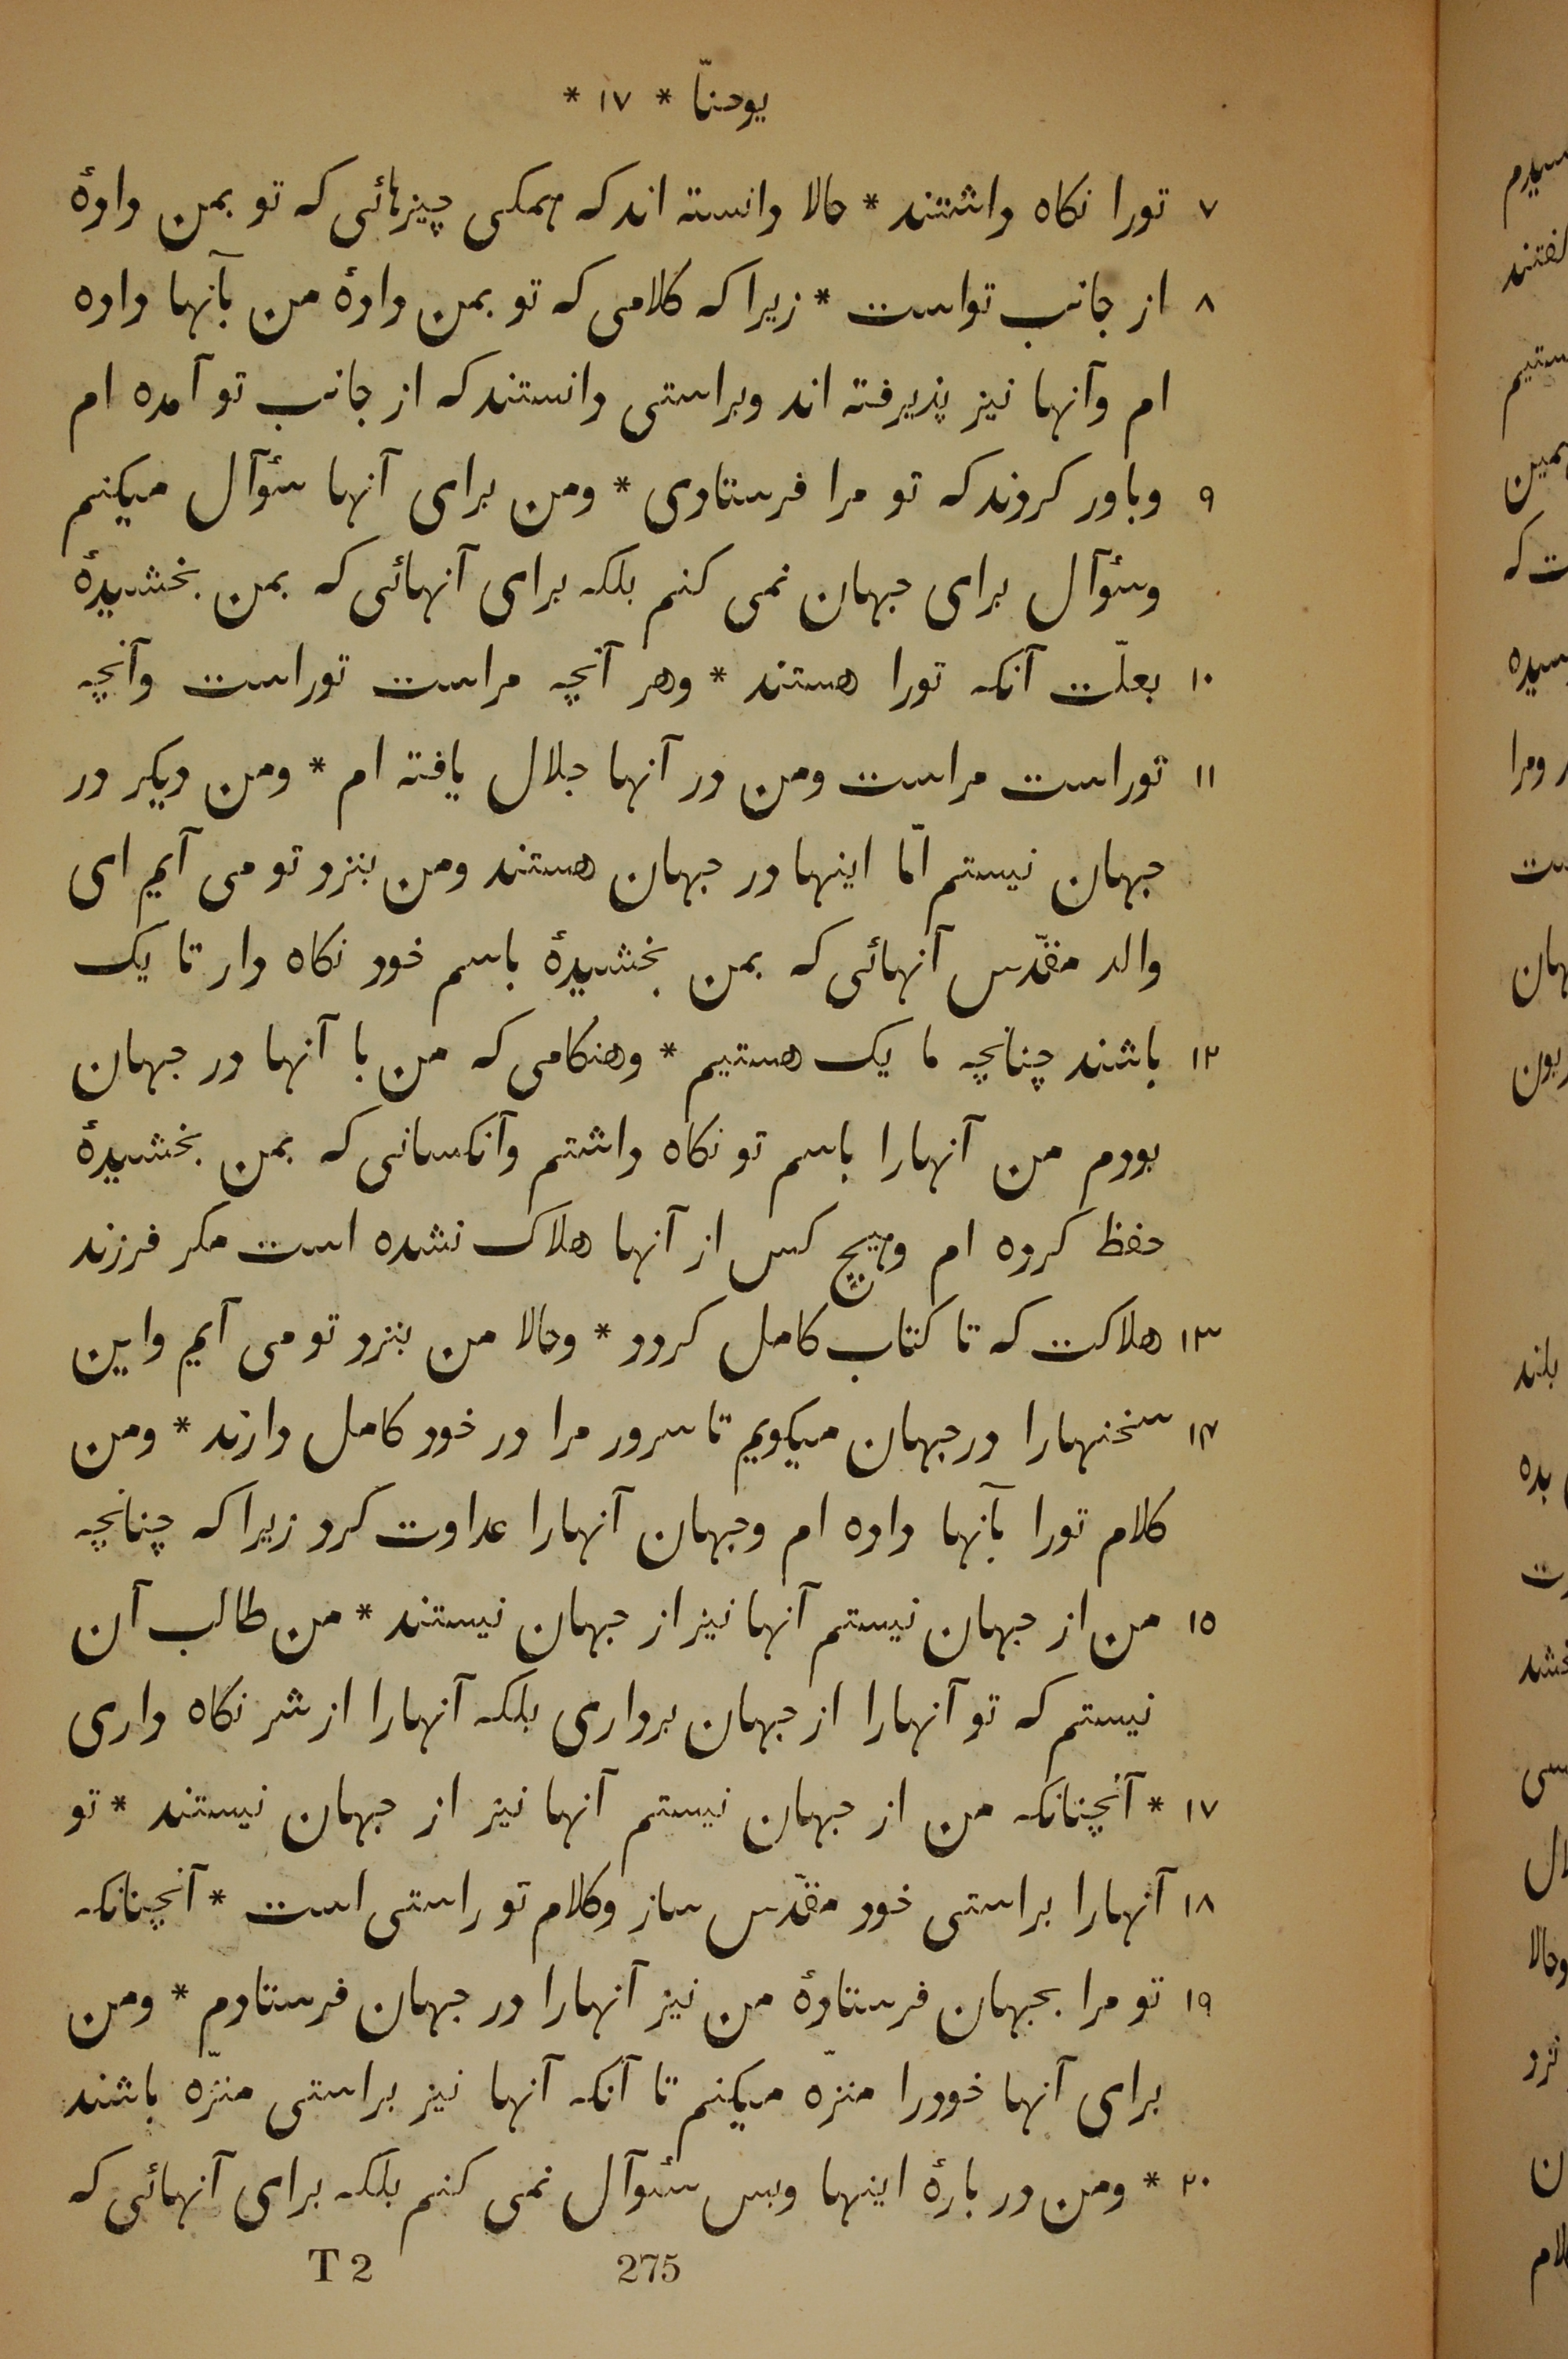 یوحنّا * ۱۷ *
۷ تورا نکاه داشتند * حالا دانسته اند که همکی چیزهائی که تو بمن دادهٔ
۸ از جانب تواست * زیرا که کلامی که تو بمن دادهٔ من بآنها داده
ام وآنها نیز پذیرفته اند وبراستی دانستند که از جانب تو آمده ام
۹ وباور کردند که تو مرا فرستادی * ومن برای آنها سؤآل میکنم
وسؤآل برای جهان نمی کنم بلکه برای آنهائی که بمن بخشیدهٔ
۱۰ بعلّت آنکه تورا هستند * وهر آنچه مراست توراست وآنچه
۱۱ توراست مراست ومن در آنها جلال یافته ام * ومن دیکر در
جهان نیستم امّا اینها در جهان هستند ومن بنزد تو می آیم ای
والد مقدّس آنهائی که بمن بخشیدهٔ باسم خود نکاه دار تا یک
۱۲ باشند چنانچه ما یک هستیم * وهنکامی که من با آنها در جهان
بودم من آنهارا باسم تو نکاه داشتم وآنکسانی که بمن بخشیدهٔ
حفظ کرده ام وهیچ کس از آنها هلاک نشده است مکر فرزند
۱۳ هلاکت که تا کتاب کامل کردد * وحالا من بنزد تو می آیم واین
۱۴ سخنهارا درجهان میکویم تا سرور مرا در خود کامل دارند * ومن
کلام تورا بآنها داده ام وجهان آنهارا عداوت کرد زیرا که چنانچه
۱۵ من از جهان نیستم آنها نیز از جهان نیستند * من طالب آن
نیستم که تو آنهارا از جهان برداری بلکه آنهارا از شر نکاه داری
۱۷ * آنچنانکه من از جهان نیستم آنها نیز از جهان نیستند * تو
۱۸ آنهارا براستی خود مقدّس ساز وکلام تو راستی است * آنچنانکه
۱۹ تو مرا بجهان فرستادهٔ من نیز آنهارا در جهان فرستادم * ومن
برای آنها خودرا منزّه میکنم تا آنکه آنها نیز براستی منزّه باشند
۲۰ * ومن در بارهٔ اینها وبس سئوآل نمی کنم بلکه برای آنهائی که
275 T 2